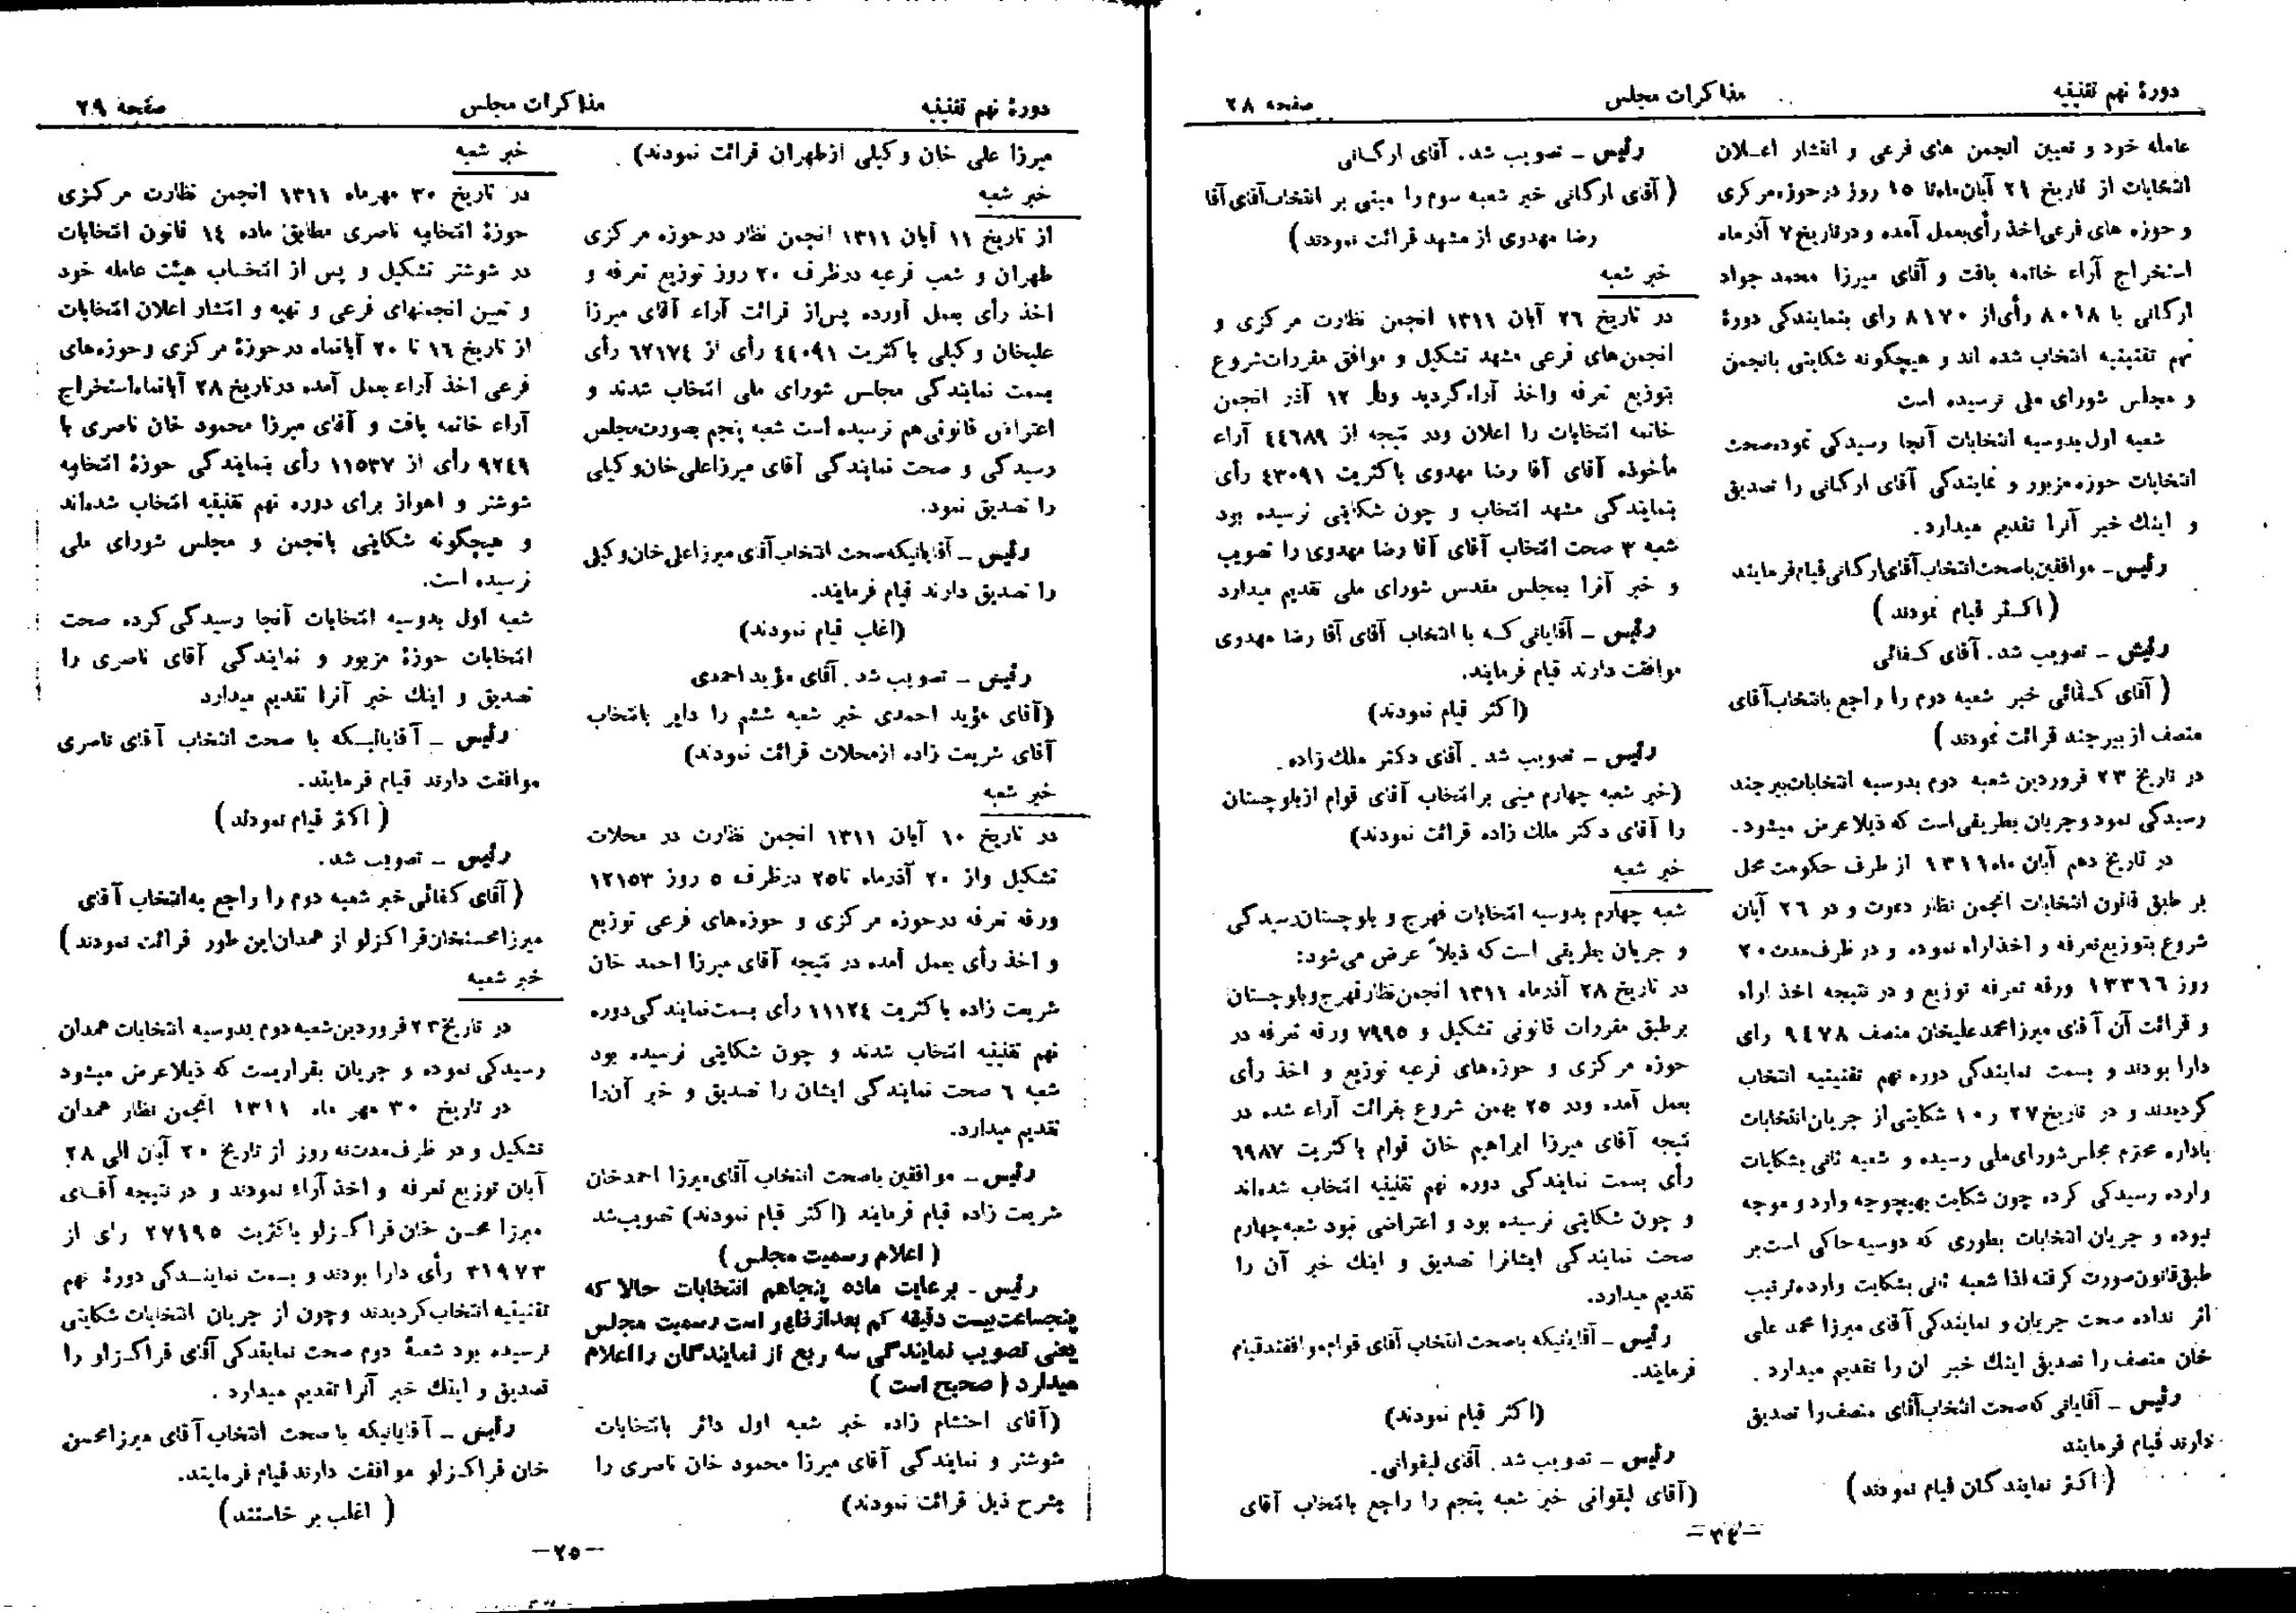 دورهٔ نهم تقنینیه
مذاکرات مجلس
صفحه ۲۸
عامله خود و تعیین انجمن های فرعی و انتشار اعلان
انتخابات از تاریخ ۲۱ آبان‌ماه‌تا ۱۵ روز درحوزه‌مرکزی
و حوزه های فرعی‌اخذ رأی‌بعمل آمده و درتاریخ ۷ آذرماه
استخراج آراء خاتمه یافت و آقای میرزا محمد جواد
ارکانی با ۸۰۱۸ رأی‌از ۸۱۷۰ رأی بنمایندگی دورهٔ
نهم تقنینیه انتخاب شده اند و هیچگونه شکایتی بانجمن
و مجلس شورای ملی نرسیده است
شعبه اول بدوسیه انتخابات آنجا رسیدگی نموده‌صحت
انتخابات حوزه‌مزبور و نمایندگی آقای ارکانی را تصدیق
و اینك خبر آنرا تقدیم میدارد.
رئیس ـ موافقین باصحت‌انتخاب‌آقای‌ارکانی‌قیام‌فرمایند
(اکثر قیام نمودند)
رئیس ـ تصویب شد. آقای کفائی
( آقای کفائی خبر شعبه دوم را راجع بانتخاب‌آقای
منصف از بیرجند قرائت نمودند)
در تاریخ ۲۳ فروردین شعبه دوم بدوسیه انتخابات‌بیرجند
رسیدگی نمود و جریان بطریقی‌است که ذیلا عرض میشود.
در تاریخ دهم آبان ماه۱۳۱۱ از طرف حکومت محل
بر طبق قانون انتخابات انجمن نظار دعوت و در ۲۶ آبان
شروع بتوزیع‌تعرفه و اخذاراء نموده و در ظرف‌مدت۲۰
روز ۱۳۳۱۶ ورقه تعرفه توزیع و در نتیجه اخذ اراء
و قرائت آن آقای میرزامحمدعلیخان منصف ۹۴۷۸ رای
دارا بودند و بسمت نمایندگی دوره نهم تقنینیه انتخاب
گردیدند و در تاریخ ۲۷ ر ۱۰ شکایتی از جریان‌انتخابات
باداره محترم مجلس‌شورای‌ملی رسیده و شعبه ثانی بشکایات
وارده رسیدگی کرده چون شکایت بهیچوجه وارد و موجه
نبوده و جریان انتخابات بطوری که دوسیه حاکی است‌بر
طبق‌قانون‌صورت گرفته لذا شعبه ثانی بشکایت وارده‌ترتیب
اثر نداده صحت جریان و نمایندگی آقای میرزا محمد علی
خان منصف را تصدیق اینك خبر ان را تقدیم میدارد .
رئیس ـ آقایانی که‌صحت انتخاب‌آقای منصف‌را تصدیق
دارند قیام فرمایند
( اکثر نمایندگان قیام نمودند )
رئیس ـ تصویب شد. آقای ارکانی
( آقای ارکانی خبر شعبه سوم را مبنی بر انتخاب‌آقای‌آقا
رضا مهدوی از مشهد قرائت نمودند)
خبر شعبه
در تاریخ ۲۶ آبان ۱۳۱۱ انجمن نظارت مرکزی و
انجمن‌های فرعی مشهد تشکیل و موافق مقررات‌شروع
بتوزیع تعرفه واخذ آراءگردید ودر ۱۲ آذر انجمن
خاتمه انتخابات را اعلان ودر نتیجه از ۴۴۶۸۹ آراء
مأخوذه آقای آقا رضا مهدوی باکثریت ۴۳۰۹۱ رأی
بنمایندگی مشهد انتخاب و چون شکایتی نرسیده بود
شعبه ۳ صحت انتخاب آقای آقا رضا مهدوی را تصویب
و خبر آنرا بمجلس مقدس شورای ملی تقدیم میدارد
رئیس ـ آقایانی که با انتخاب آقای آقا رضا مهدوی
موافقت دارند قیام فرمایند.
(اکثر قیام نمودند)
رئیس ـ تصویب شد . آقای دکتر ملك‌زاده.
(خبر شعبه چهارم مبنی برانتخاب آقای قوام ازبلوچستان
را آقای دکتر ملك زاده قرائت نمودند)
خبر شعبه
شعبه چهارم بدوسیه انتخابات فهرج و بلوچستان‌رسیدگی
و جریان بطریقی است‌که ذیلاً عرض می‌شود:
در تاریخ ۲۸ آذرماه ۱۳۱۱ انجمن‌نظارفهرج‌وبلوچستان
برطبق مقررات قانونی تشکیل و ۷۹۹۵ ورقه تعرفه در
حوزه مرکزی و حوزه‌های فرعیه توزیع و اخذ رأی
بعمل آمده ودر ۲۵ بهمن شروع بقرائت آراء شده در
نتیجه آقای میرزا ابراهیم خان قوام باکثریت ۶۹۸۷
رأی بسمت نمایندگی دوره نهم تقنینیه انتخاب شده‌اند
و چون شکایتی نرسیده بود و اعتراضی نبود شعبه‌چهارم
صحت نمایندگی ایشانرا تصدیق و اینك خبر آن را
تقدیم میدارد.
رئیس ـ آقایانیکه باصحت‌انتخاب آقای قوام‌موافقندقیام
فرمایند.
(اکثر قیام نمودند)
رئیس ـ تصویب شد. آقای لیقوانی.
(آقای لیقوانی خبر شعبه پنجم را راجع بانتخاب آقای
ـ۲٤ـ
دورهٔ نهم تقنینیه
مذاکرات مجلس
صفحه ۲۹
میرزا علی خان وکیلی ازطهران قرائت نمودند)
خبر شعبه
از تاریخ ۱۱ آبان ۱۳۱۱ انجمن نظار درحوزه مرکزی
طهران و شعب فرعیه درظرف ۲۰ روز توزیع تعرفه و
اخذ رأی بعمل آورده پس‌از قرائت آراء آقای میرزا
علیخان وکیلی باکثریت ۴۴۰۹۱ رأی از ۶۲۱۷۴ رأی
بسمت نمایندگی مجلس شورای ملی انتخاب شدند و
اعتراض قانونی‌هم نرسیده است شعبه پنجم بصورت‌مجلس
رسیدگی و صحت نمایندگی آقای میرزاعلی‌خان‌وکیلی
را تصدیق نمود.
رئیس ـ آقایانیکه‌صحت انتخاب‌آقای میرزاعلی‌خان‌وکیلی
را تصدیق دارند قیام فرمایند.
(اغلب قیام نمودند)
رئیس ـ تصویب شد . آقای مؤیداحمدی
(آقای مؤید احمدی خبر شعبه ششم را دایر بانتخاب
آقای شریعت زاده ازمحلات قرائت نمودند)
خبر شعبه
در تاریخ ۱۰ آبان ۱۳۱۱ انجمن نظارت در محلات
تشکیل واز ۲۰ آذرماه تا۲۵ درظرف ۵ روز ۱۲۱۵۳
ورقه تعرفه درحوزه مرکزی و حوزه‌های فرعی توزیع
و اخذ رأی بعمل آمده در نتیجه آقای میرزا احمد خان
شریعت زاده باکثریت ۱۱۱۲۴ رأی بسمت‌نمایندگی‌دوره
نهم تقنینیه انتخاب شدند و چون شکایتی نرسیده بود
شعبه ۶ صحت نمایندگی ایشان را تصدیق و خبر آن‌را
تقدیم میدارد.
رئیس ـ موافقین باصحت انتخاب آقای‌میرزا احمدخان
شریعت زاده قیام فرمایند (اکثر قیام نمودند) تصویب‌شد
( اعلام رسمیت مجلس )
رئیس ـ برعایت ماده پنجاهم انتخابات حالا که
پنجساعت‌بیست دقیقه کم بعدازظهر است رسمیت مجلس
یعنی تصویب نمایندگی سه ربع از نمایندگان را اعلام
میدارد ( صحیح است )
(آقای احتشام زاده خبر شعبه اول دائر بانتخابات
شوشتر و نمایندگی آقای میرزا محمود خان ناصری را
بشرح ذیل قرائت نمودند)
خبر شعبه
در تاریخ ۳۰ مهرماه ۱۳۱۱ انجمن نظارت مرکزی
حوزهٔ انتخابیه ناصری مطابق ماده ۱۴ قانون انتخابات
در شوشتر تشکیل و پس از انتخاب هیئت عامله خود
و تعیین انجمنهای فرعی و تهیه و انتشار اعلان انتخابات
از تاریخ ۱۶ تا ۲۰ آبانماه درحوزهٔ مرکزی وحوزه‌های
فرعی اخذ آراء بعمل آمده درتاریخ ۲۸ آبانماه‌استخراج
آراء خاتمه یافت و آقای میرزا محمود خان ناصری با
۹۲۴۹ رأی از ۱۱۵۳۷ رأی بنمایندگی حوزهٔ انتخابیه
شوشتر و اهواز برای دوره نهم تقنینیه انتخاب شده‌اند
و هیچگونه شکایتی بانجمن و مجلس شورای ملی
نرسیده است.
شعبه اول بدوسیه انتخابات آنجا رسیدگی‌کرده صحت
انتخابات حوزهٔ مزبور و نمایندگی آقای ناصری را
تصدیق و اینك خبر آنرا تقدیم میدارد
رئیس ـ آقایانیکه با صحت انتخاب آقای ناصری
موافقت دارند قیام فرمایند.
( اکثر قیام نمودند )
رئیس ـ تصویب شد.
( آقای کفائی خبر شعبه دوم را راجع به‌انتخاب آقای
میرزامحسنخان‌قراگزلو از همدان‌این طور قرائت نمودند)
خبر شعبه
در تاریخ۲۳ فروردین‌شعبه دوم بدوسیه انتخابات همدان
رسیدگی نموده و جریان بقراریست که ذیلاعرض میشود
در تاریخ ۳۰ مهر ماه ۱۳۱۱ انجمن نظار همدان
تشکیل و در ظرف‌مدت‌نه روز از تاریخ ۲۰ آبان الی ۲۸
آبان توزیع تعرفه و اخذ آراء نمودند و در نتیجه آقای
میرزا محسن خان‌قراگزلو باکثریت ۲۷۹۹۵ رای از
۳۱۹۷۳ رأی دارا بودند و بسمت نمایندگی دورهٔ نهم
تقنینیه انتخاب‌گردیدند وچون از جریان انتخابات شکایتی
نرسیده بود شعبهٔ دوم صحت نمایندگی آقای قراگزلو را
تصدیق و اینك خبر آنرا تقدیم میدارد .
رئیس ـ آقایانیکه با صحت انتخاب آقای میرزامحسن
خان قراگزلو موافقت دارند قیام فرمایند.
( اغلب بر خاستند)
ـ۲۵ـ